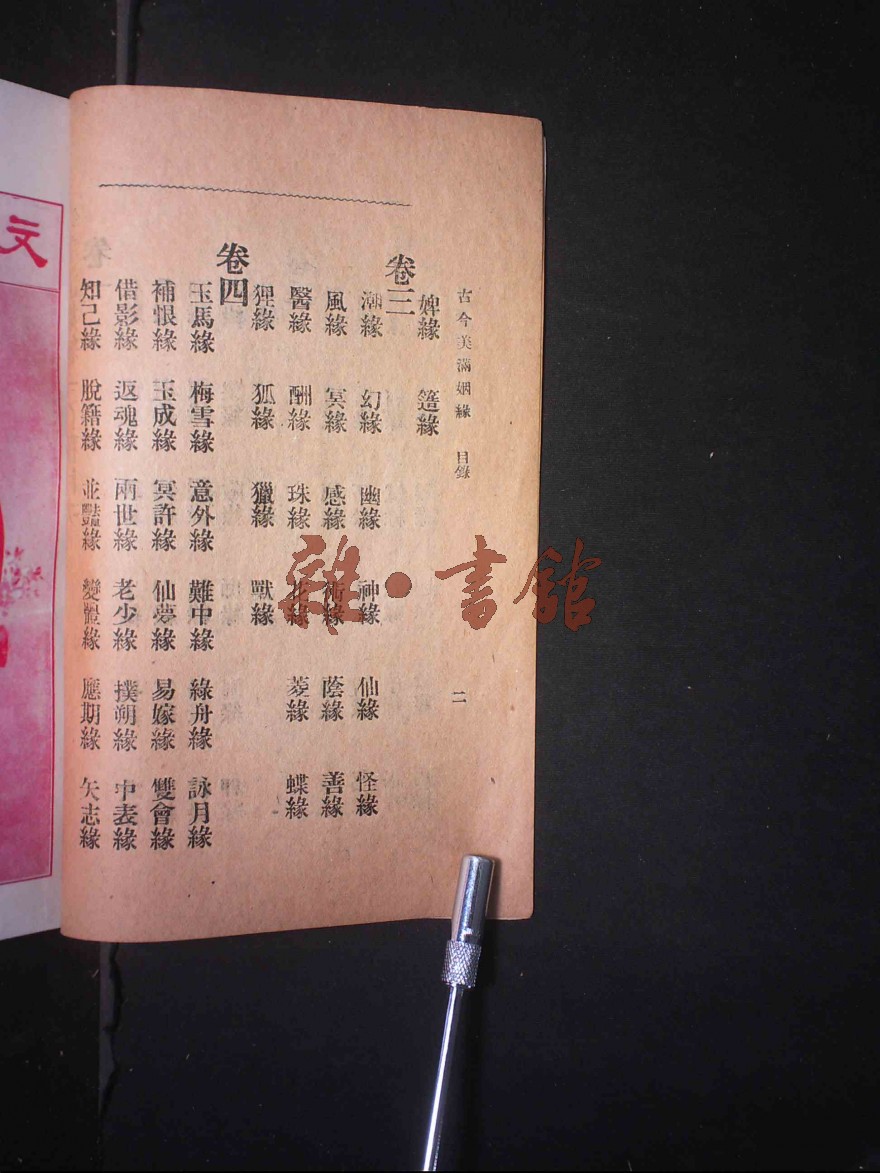 古今美滿姻緣 目錄 二
婢緣 簉緣
卷三
潮緣 幻緣 幽緣 神緣 仙緣 怪緣
風緣 冥緣 感緣 術緣 蔭緣 善緣
醫緣 酬緣 珠緣 花緣 菱緣 蝶緣
狸緣 狐緣 獵緣 獸緣
卷四
玉馬緣 梅雪緣 意外緣 難中緣 綠舟緣 詠月緣
補恨緣 玉成緣 冥許緣 仙夢緣 易嫁緣 雙會緣
借影緣 返魂緣 兩世緣 老少緣 撲朔緣 中表緣
知己緣 脫籍緣 並豔緣 變體緣 應期緣 矢志緣
文
雜·書館